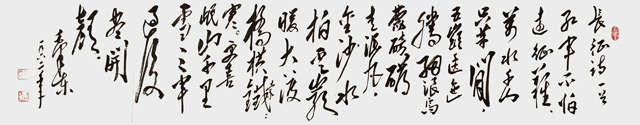 长征诗一首
红军不怕
远征难，
万水千山
只等闲。
五岭逶迤
腾细浪，乌
蒙磅礴
走泥丸。
金沙水
拍云崖
暖，大渡
桥横铁索
寒。更喜
岷山千里
雪，三军
过后
尽开
颜。
毛泽东